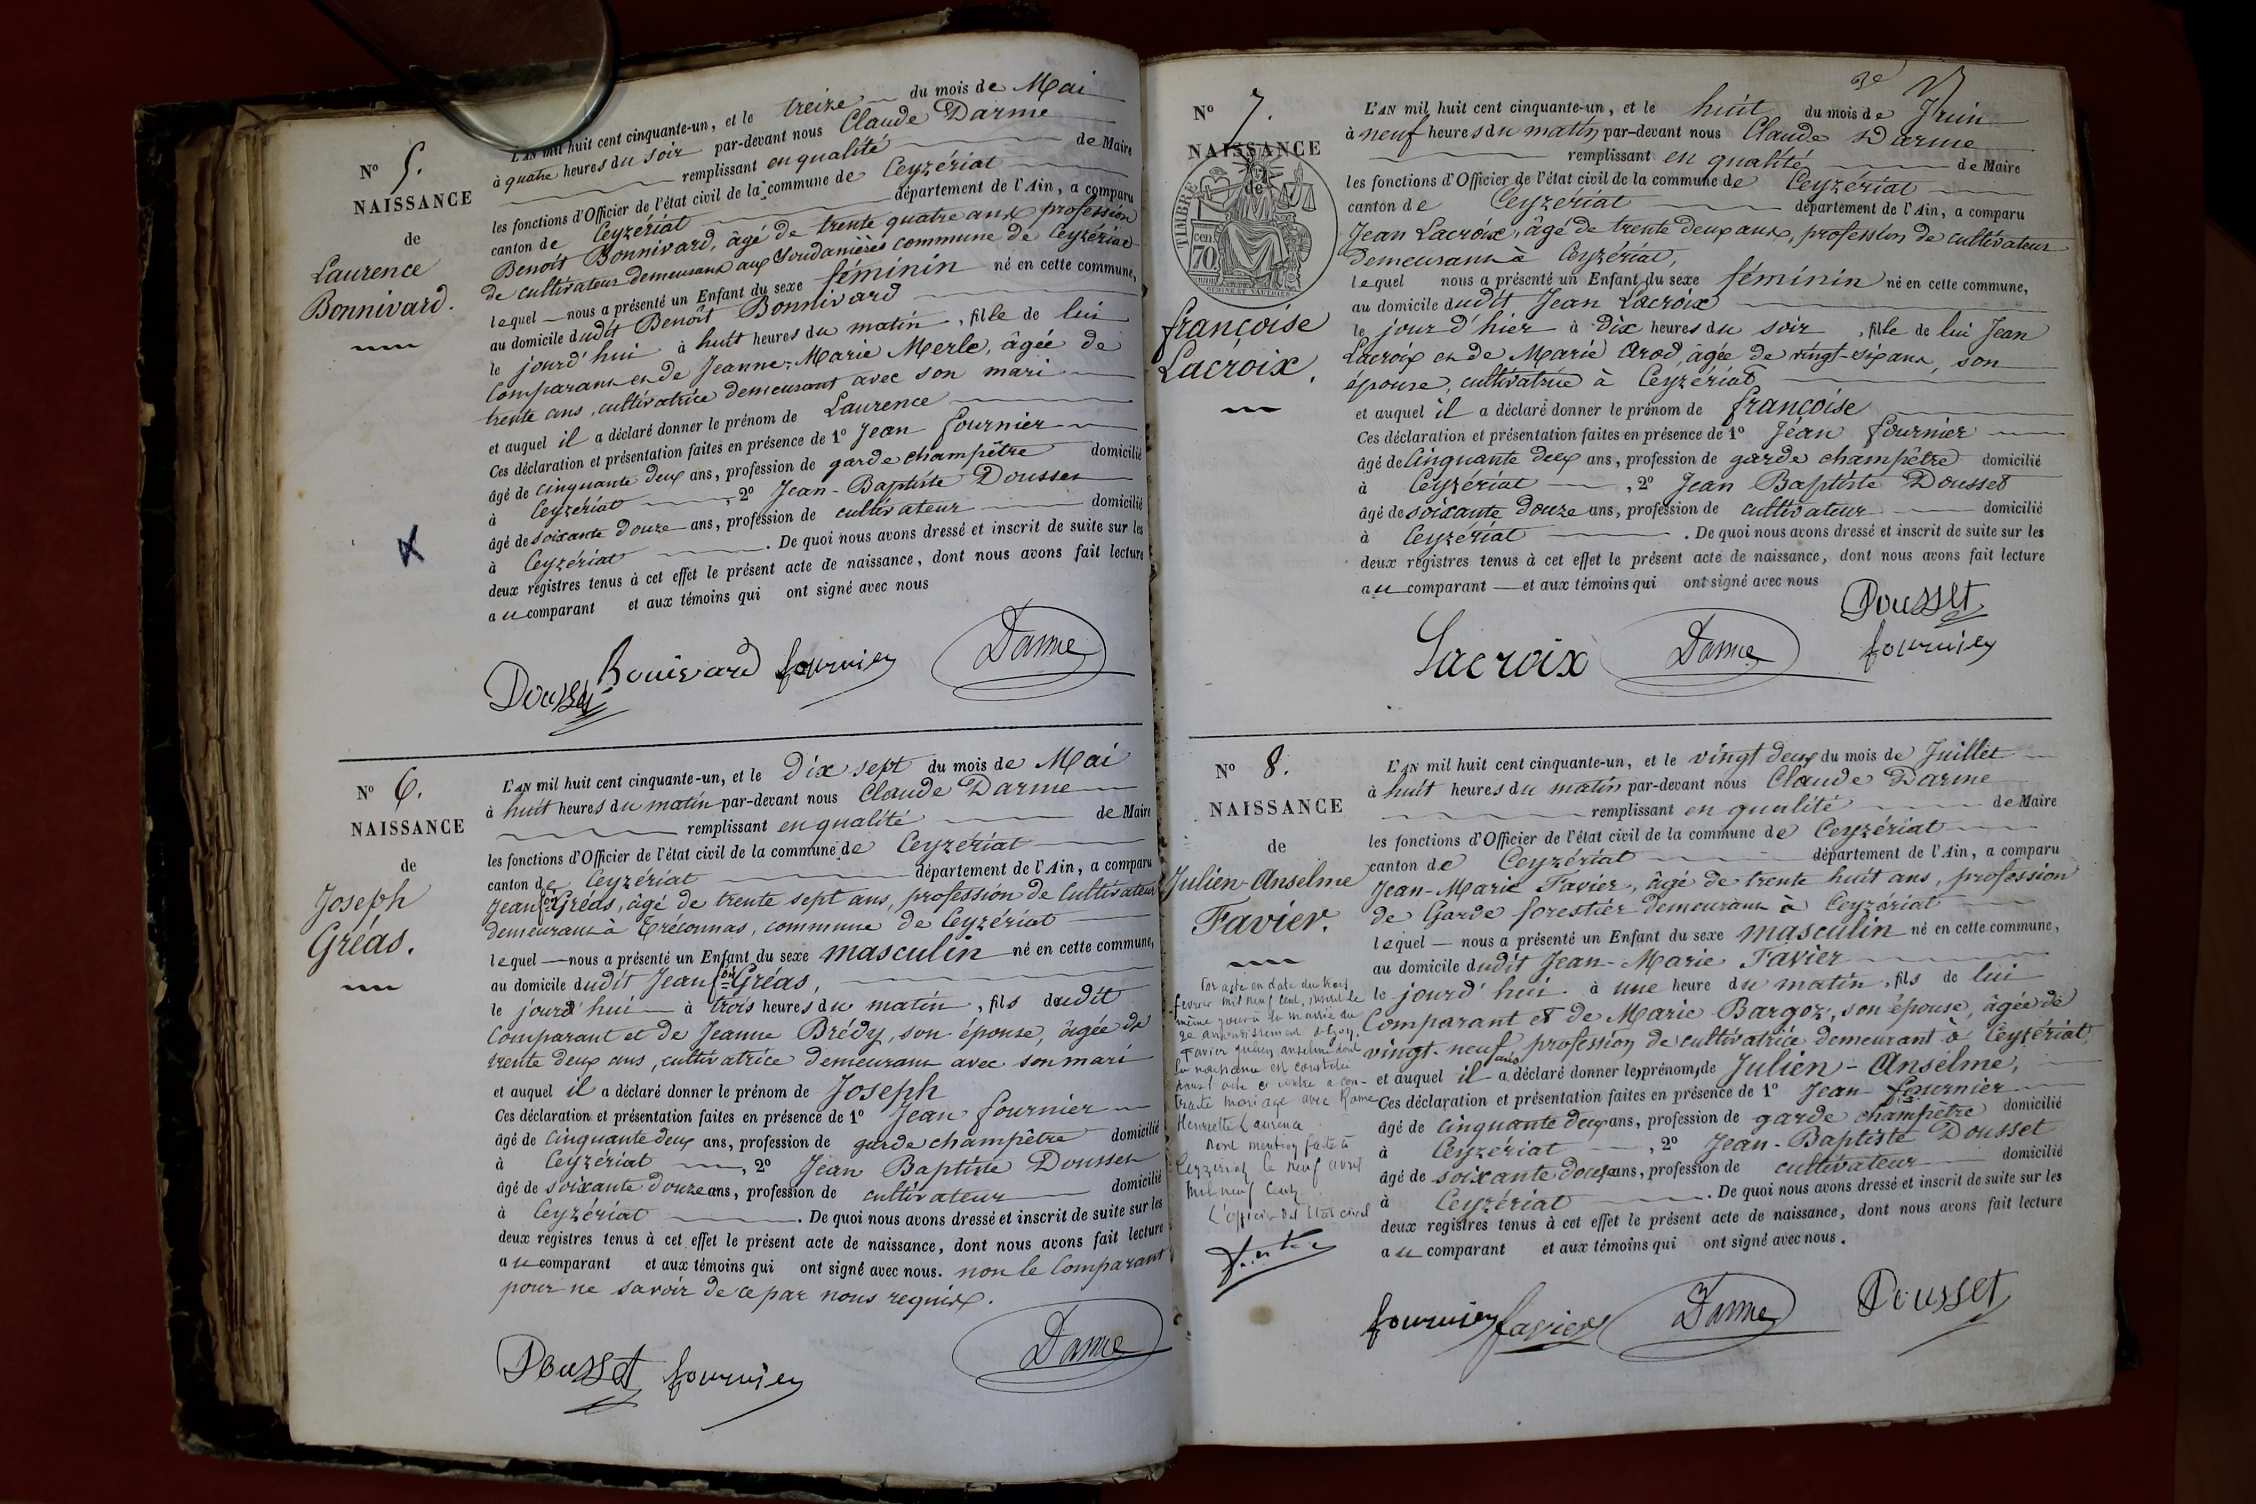 No 5.
NAISSANCE
de
Laurence
Bonnivard.
L'AN mil huit cent cinquante-un, et le treize du mois de Mai
à quatre heures du soir par-devant nous Claude Darme
remplissant en qualité de Maire
les fonctions d'Officier de l'état civil de la commune de Ceyzériat
canton de Ceyzériat département de l'Ain, a comparu
Benoît Bonnivard, âgé de trente quatre ans profession
de cultivateur demeurant aux Soudanières commune de Ceyzériat
lequel nous a présenté un Enfant du sexe féminin né en cette commune,
au domicile dudit Benoît Bonnivard
le jourd'hui à huit heures du matin, fille de lui
Comparant et de Jeanne-Marie Merle, âgée de
trente ans, cultivatrice demeurant avec son mari
et auquel il a déclaré donner le prénom de Laurence
Ces déclaration et présentation faites en présence de 1o Jean Fournier
âgé de cinquante deux ans, profession de garde champêtre domicilié
à Ceyzériat, 2o Jean-Baptiste Dousset
âgé de soixante douze ans, profession de cultivateur domicilié
à Ceyzériat. De quoi nous avons dressé et inscrit de suite sur les
deux registres tenus à cet effet le présent acte de naissance, dont nous avons fait lecture
au comparant et aux témoins qui ont signé avec nous
Dousset Bonivard fournier Darme
No 6.
NAISSANCE
de
Joseph
Gréas.
L'AN mil huit cent cinquante-un, et le dix sept du mois de Mai
à huit heures du matin par-devant nous Claude Darme
remplissant en qualité de Maire
les fonctions d'Officier de l'état civil de la commune de Ceyzériat
canton de Ceyzériat département de l'Ain, a comparu
Jean fçois Gréas, âgé de trente sept ans, profession de Cultivateur
demeurant à Tréconnas, commune de Ceyzériat
lequel nous a présenté un Enfant du sexe masculin né en cette commune,
au domicile dudit Jean fçois Gréas,
le jourd'hui à trois heures du matin, fils dudit
Comparant et de Jeanne Brédy, son épouse, âgée de
trente deux ans, cultivatrice demeurant avec son mari
et auquel il a déclaré donner le prénom de Joseph
Ces déclaration et présentation faites en présence de 1o Jean Fournier
âgé de cinquante deux ans, profession de garde champêtre domicilié
à Ceyzériat, 2o Jean Baptiste Dousset
âgé de soixante douze ans, profession de cultivateur domicilié
à Ceyzériat. De quoi nous avons dressé et inscrit de suite sur les
deux registres tenus à cet effet le présent acte de naissance, dont nous avons fait lecture
au comparant et aux témoins qui ont signé avec nous. non le Comparant
pour ne savoir de ce par nous requis.
Dousset fournier Darme
No 7.
NAISSANCE
de
TIMBRE
cen
70.
françoise
Lacroix.
L'AN mil huit cent cinquante-un, et le huit du mois de Juin
à neuf heures du matin par-devant nous Claude Darme
remplissant en qualité de Maire
les fonctions d'Officier de l'état civil de la commune de Ceyzériat
canton de Ceyzériat département de l'Ain, a comparu
Jean Lacroix, âgé de trente deux ans, profession de cultivateur
demeurant à Ceyzériat,
lequel nous a présenté un Enfant du sexe féminin né en cette commune,
au domicile dudit Jean Lacroix
le jour d'hier à dix heures du soir, fille de lui Jean
Lacroix et de Marie Arod, âgée de vingt-six ans, son
épouse, cultivatrice à Ceyzériat,
et auquel il a déclaré donner le prénom de françoise
Ces déclaration et présentation faites en présence de 1o Jean Fournier
âgé de Cinquante deux ans, profession de garde champêtre domicilié
à Ceyzériat, 2o Jean Baptiste Dousset
âgé de soixante douze ans, profession de cultivateur domicilié
à Ceyzériat. De quoi nous avons dressé et inscrit de suite sur les
deux registres tenus à cet effet le présent acte de naissance, dont nous avons fait lecture
au comparant et aux témoins qui ont signé avec nous
Dousset
Lacroix Darme fournier
No 8.
NAISSANCE
de
Julien-Anselme
Favier.
Par acte en date du trois
février mil neuf cent, inscrit le
même jour à la mairie du
2e arrondissement de Lyon,
Favier Julien anselme dont
la naissance est constatée
par l'acte ci contre a con-
tracté mariage avec Rome
Henriette Laurence
Dont mention faite à
Ceyzériat le neuf avril
mil neuf cent
L'officier de l'Etat civil
L'AN mil huit cent cinquante-un, et le vingt deux du mois de Juillet
à huit heures du matin par-devant nous Claude Darme
remplissant en qualité de Maire
les fonctions d'Officier de l'état civil de la commune de Ceyzériat
canton de Ceyzériat département de l'Ain, a comparu
Jean-Marie Favier, âgé de trente huit ans, profession
de Garde forestier demeurant à Ceyzériat
lequel nous a présenté un Enfant du sexe masculin né en cette commune,
au domicile dudit Jean-Marie Favier
le jourd'hui à une heure du matin, fils de lui
Comparant et de Marie Bargoz, son épouse, âgée de
vingt-neuf ans profession de cultivatrice demeurant à Ceyzériat,
et auquel il a déclaré donner les prénoms de Julien-Anselme,
Ces déclaration et présentation faites en présence de 1o Jean Fournier
âgé de cinquante deux ans, profession de garde champêtre domicilié
à Ceyzériat, 2o Jean-Baptiste Dousset
âgé de soixante douze ans, profession de cultivateur domicilié
à Ceyzériat. De quoi nous avons dressé et inscrit de suite sur les
deux registres tenus à cet effet le présent acte de naissance, dont nous avons fait lecture
au comparant et aux témoins qui ont signé avec nous.
fournier favier Darme Dousset